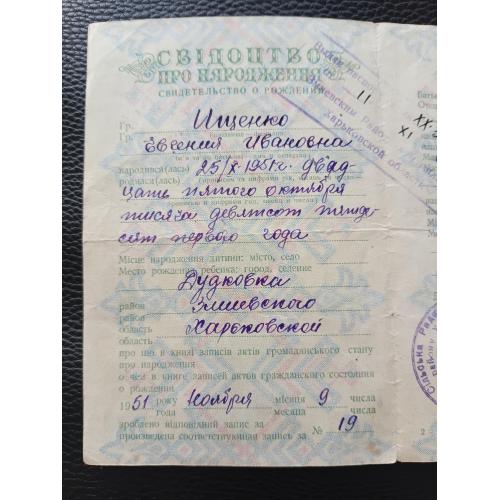 СВІДОЦТВО
ПРО НАРОДЖЕННЯ
СВИДЕТЕЛЬСТВО О РОЖДЕНИИ
11
Гр. Ищенко
Гр. Евгения Ивановна
народився(лась) 25/X-1951г. двад
родился(лась)
цать пятого октября
тисяча девятсот пятде
сят первого года
Місце народження дитини: місто, село
Место рождения ребенка: город, селение
Дудковка
район Змиевского
район
область Харьковской
область
про що в книзі записів актів громадянського стану
про народження
о чем в книге записей актов гражданского состояния
о рождении
1951 року Ноября місяця 9 числа
года месяца числа
зроблено відповідний запис за № 19
произведена соответствующая запись за
2